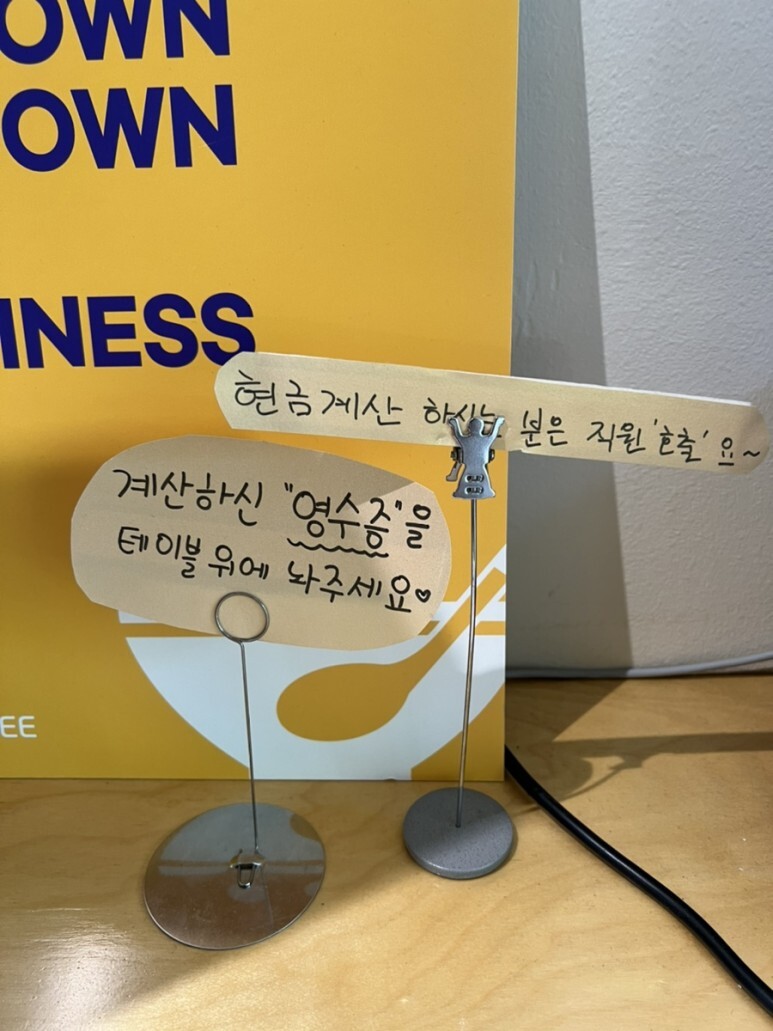 OWN
OWN
INESS
현금계산 하시는 분은 직원 '호출' 요~
계산하신 "영수증"을
테이블위에 놔주세요♥
EE